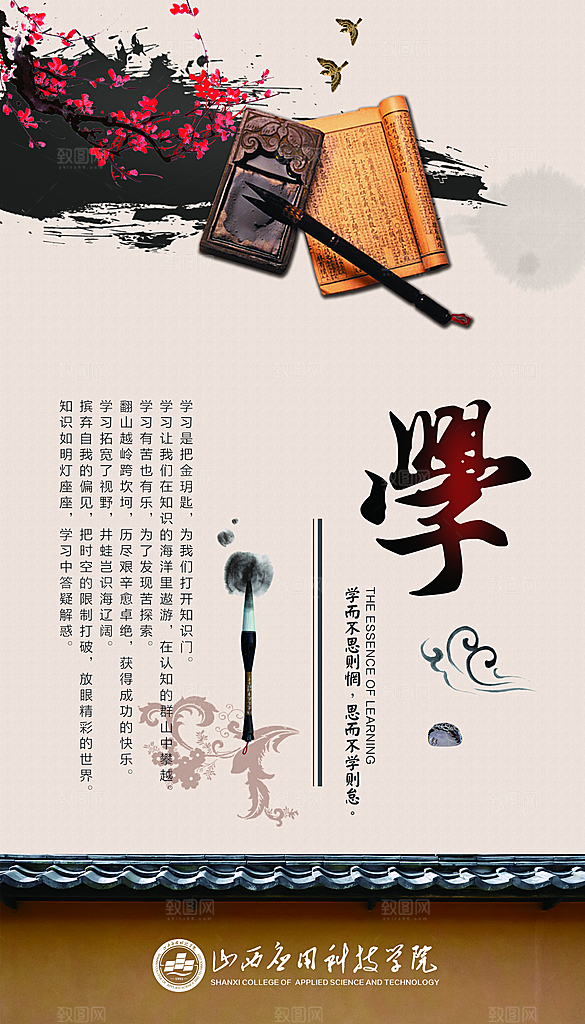 學
THE ESSENCE OF LEARNING
学而不思则惘，思而不学则怠。
学习是把金钥匙，为我们打开知识门。
学习让我们在知识的海洋里遨游，在认知的群山中攀越。
学习有苦也有乐，为了发现苦探索。
翻山越岭跨坎坷，历尽艰辛愈卓绝，获得成功的快乐。
学习拓宽了视野，井蛙岂识海辽阔。
摈弃自我的偏见，把时空的限制打破，放眼精彩的世界。
知识如明灯座座，学习中答疑解惑。
山西应用科技学院
SHANXI COLLEGE OF APPLIED SCIENCE AND TECHNOLOGY
致图网